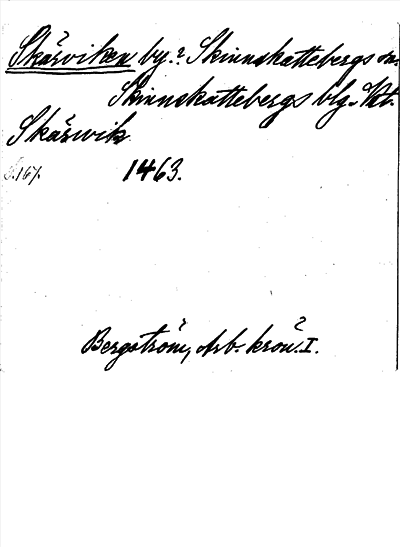 Skärviken by.? Skinnskattebergs sn.
Skinnskattebergs blg. Vstm.
Skärwik
S. 167. 1463.
Bergström, Arb. krön. I.